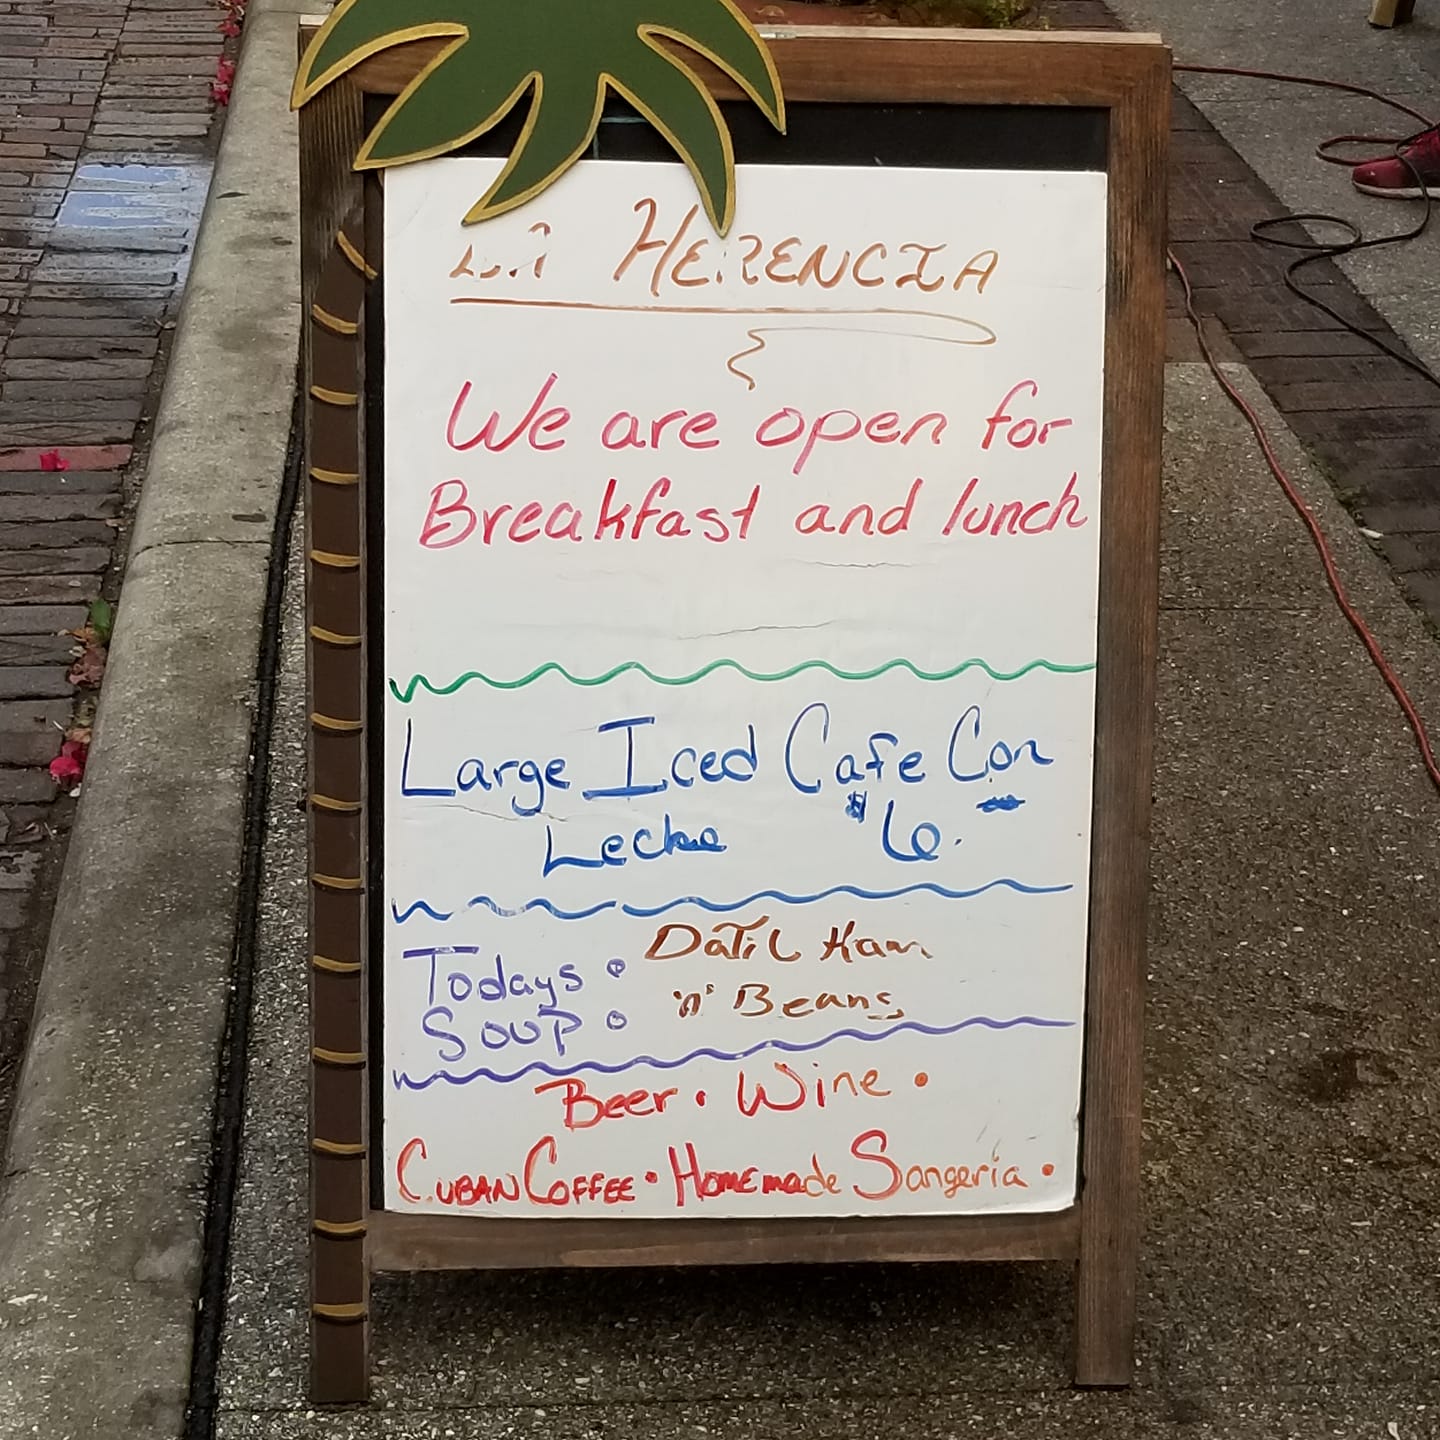 LA HERENCIA
We are open for
Breakfast and lunch
Large Iced Cafe Con
Leche $6.
Todays : Datil Ham
Soup : 'n' Beans
Beer • Wine •
Cuban Coffee • Homemade Sangeria •